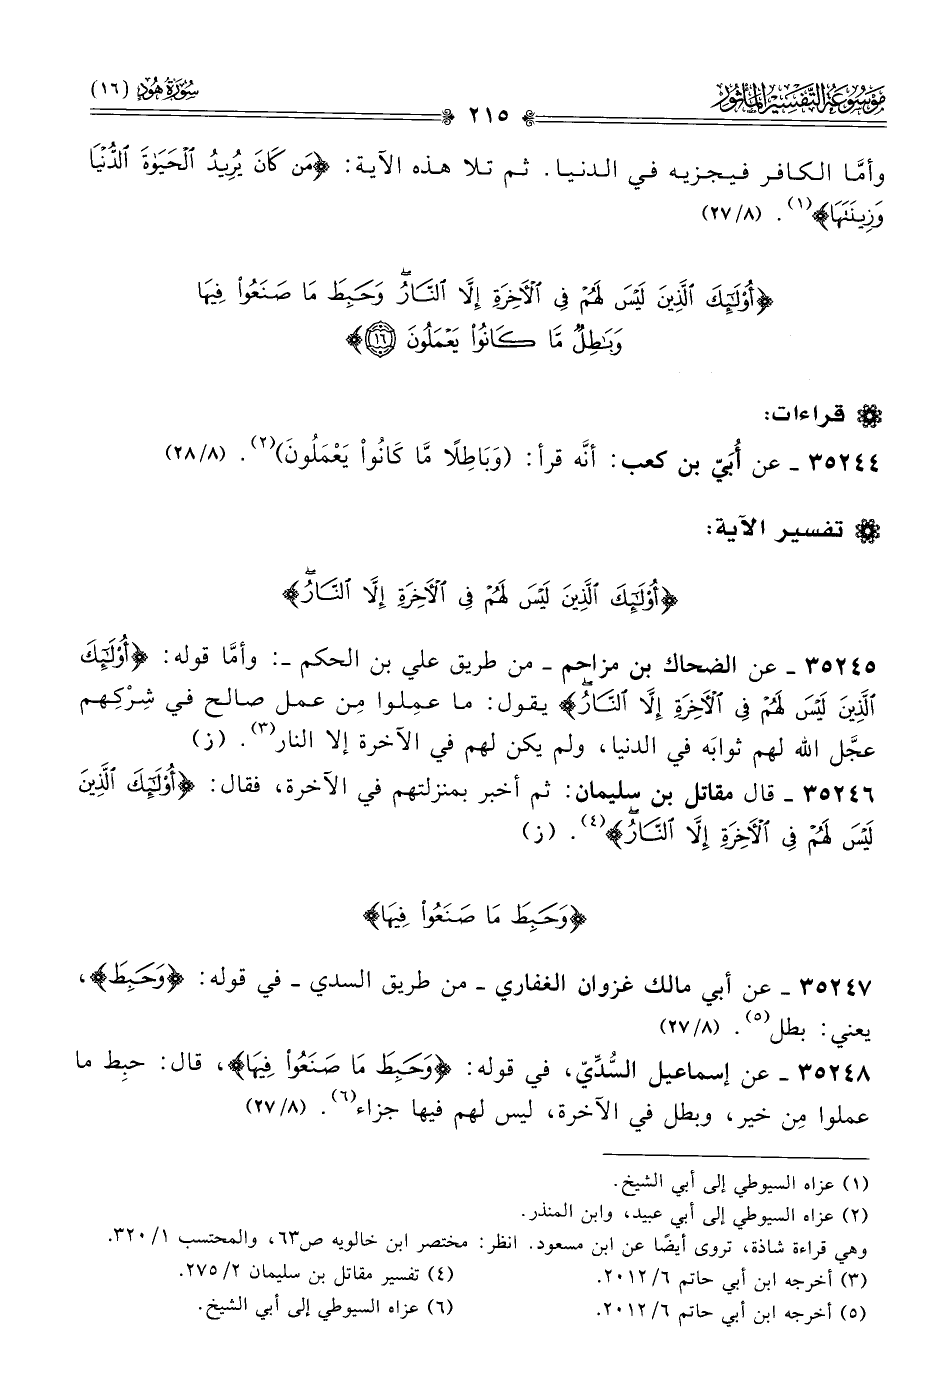 مَوْسُوعَة التَّفْسِير المَأْثُور
٢١٥
سُورَة هُود (١٦)
وأمَّا الكافر فيجزيه في الدنيا. ثم تلا هذه الآية: ﴿مَن كَانَ يُرِيدُ ٱلْحَيَوٰةَ ٱلدُّنْيَا
وَزِينَتَهَا﴾(١). (٢٧/٨)
﴿أُوْلَٰٓئِكَ ٱلَّذِينَ لَيْسَ لَهُمْ فِى ٱلْأَخِرَةِ إِلَّا ٱلنَّارُۖ وَحَبِطَ مَا صَنَعُوا۟ فِيهَا
وَبَٰطِلٌ مَّا كَانُوا۟ يَعْمَلُونَ ١٦﴾
قراءات:
٣٥٢٤٤ ـ عن أُبَيّ بن كعب: أنَّه قرأ: (وَبَاطِلًا مَّا كَانُوا۟ يَعْمَلُونَ)(٢). (٢٨/٨)
تفسير الآية:
﴿أُوْلَٰٓئِكَ ٱلَّذِينَ لَيْسَ لَهُمْ فِى ٱلْأَخِرَةِ إِلَّا ٱلنَّارُۖ﴾
٣٥٢٤٥ ـ عن الضحاك بن مزاحم ـ من طريق علي بن الحكم ـ: وأمَّا قوله: ﴿أُوْلَٰٓئِكَ
ٱلَّذِينَ لَيْسَ لَهُمْ فِى ٱلْأَخِرَةِ إِلَّا ٱلنَّارُۖ﴾ يقول: ما عمِلوا مِن عمل صالح في شِرْكِهم
عجَّل الله لهم ثوابَه في الدنيا، ولم يكن لهم في الآخرة إلا النار(٣). (ز)
٣٥٢٤٦ ـ قال مقاتل بن سليمان: ثم أخبر بمنزلتهم في الآخرة، فقال: ﴿أُوْلَٰٓئِكَ ٱلَّذِينَ
لَيْسَ لَهُمْ فِى ٱلْأَخِرَةِ إِلَّا ٱلنَّارُۖ﴾(٤). (ز)
﴿وَحَبِطَ مَا صَنَعُوا۟ فِيهَا﴾
٣٥٢٤٧ ـ عن أبي مالك غزوان الغفاري ـ من طريق السدي ـ في قوله: ﴿وَحَبِطَ﴾،
يعني: بطل(٥). (٢٧/٨)
٣٥٢٤٨ ـ عن إسماعيل السُّدِّيّ، في قوله: ﴿وَحَبِطَ مَا صَنَعُوا۟ فِيهَا﴾، قال: حبِط ما
عملوا مِن خير، وبطل في الآخرة، ليس لهم فيها جزاء(٦). (٢٧/٨)
(١) عزاه السيوطي إلى أبي الشيخ.
(٢) عزاه السيوطي إلى أبي عبيد، وابن المنذر.
وهي قراءة شاذة، تروى أيضًا عن ابن مسعود. انظر: مختصر ابن خالويه ص٦٣، والمحتسب ٣٢٠/١.
(٣) أخرجه ابن أبي حاتم ٢٠١٢/٦. (٤) تفسير مقاتل بن سليمان ٢٧٥/٢.
(٥) أخرجه ابن أبي حاتم ٢٠١٢/٦. (٦) عزاه السيوطي إلى أبي الشيخ.